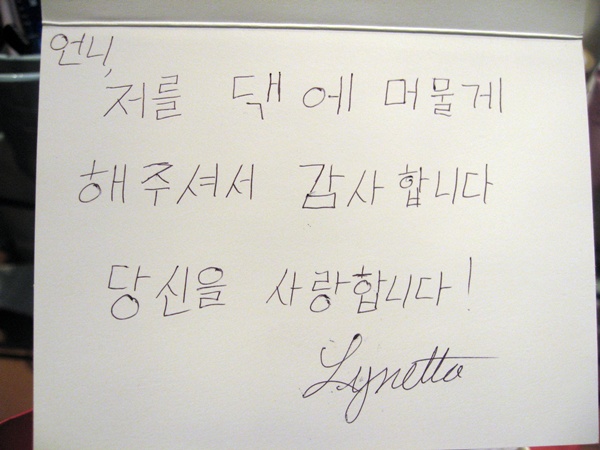 언니,
저를 댁에 머물게
해주셔서 감사합니다
당신을 사랑합니다!
Lynette